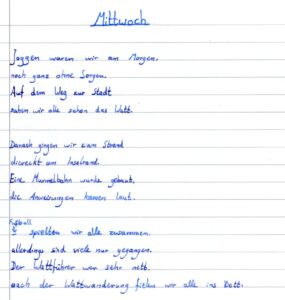 Mittwoch
Joggen waren wir am Morgen,
noch ganz ohne Sorgen.
Auf dem Weg zur Stadt
sahen wir alle schon das Watt.
Danach gingen wir zum Strand
direckt am Inselrand.
Eine Murmelbahn wurde gebaut,
die Anweisungen kamen laut.
Fußball
spielten wir alle zusammen,
allerdings sind viele nur gegangen.
Der Wattführer war sehr nett,
nach der Wattwanderung fielen wir alle ins Bett.